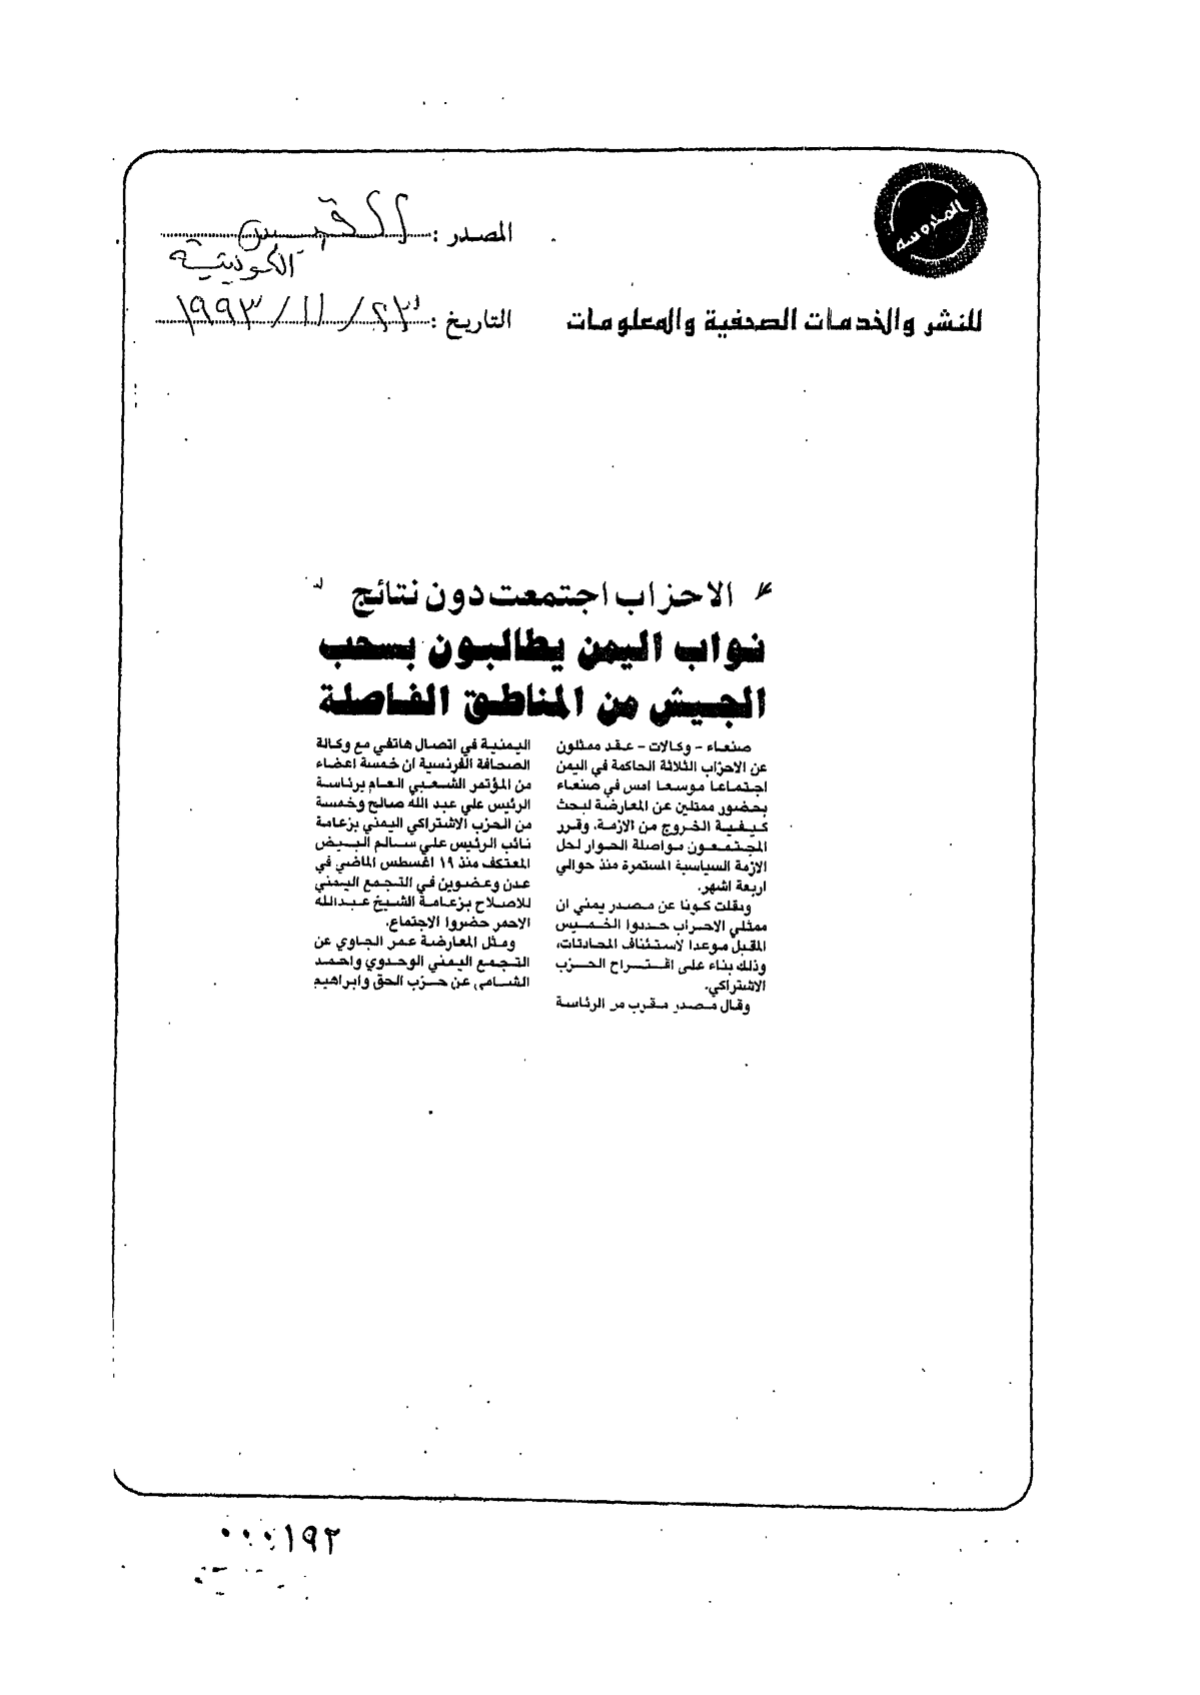 المحروسة
للنشر والخدمات الصحفية والمعلومات
المصدر : القبس
الكويتية
التاريخ : ٢٣ / ١١ / ١٩٩٣
الاحزاب اجتمعت دون نتائج
نواب اليمن يطالبون بسحب
الجيش من المناطق الفاصلة
صنعاء - وكالات - عقد ممثلون
عن الاحزاب الثلاثة الحاكمة في اليمن
اجتماعا موسعا امس في صنعاء
بحضور ممثلين عن المعارضة لبحث
كيفية الخروج من الازمة، وقرر
المجتمعون مواصلة الحوار لحل
الازمة السياسية المستمرة منذ حوالي
اربعة اشهر.
ونقلت كونا عن مصدر يمني ان
ممثلي الاحزاب حددوا الخميس
المقبل موعدا لاستئناف المحادثات،
وذلك بناء على اقتراح الحزب
الاشتراكي.
وقال مصدر مقرب من الرئاسة
اليمنية في اتصال هاتفي مع وكالة
الصحافة الفرنسية ان خمسة اعضاء
من المؤتمر الشعبي العام برئاسة
الرئيس علي عبد الله صالح وخمسة
من الحزب الاشتراكي اليمني بزعامة
نائب الرئيس علي سالم البيض
المعتكف منذ ١٩ اغسطس الماضي في
عدن وعضوين في التجمع اليمني
للاصلاح بزعامة الشيخ عبدالله
الاحمر حضروا الاجتماع.
ومثل المعارضة عمر الجاوي عن
التجمع اليمني الوحدوي واحمد
الشامي عن حزب الحق وابراهيم
٠٠٠١٩٢